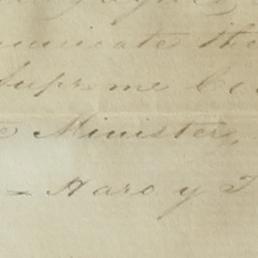 municate the
Supreme Co
e Minister,
= Haro y T